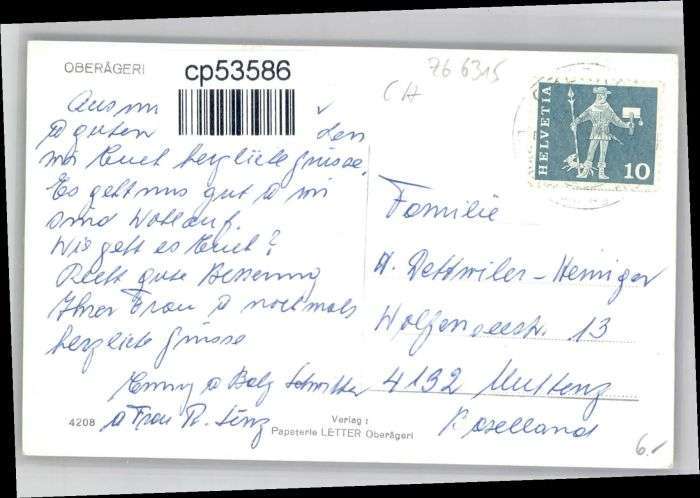 OBERÄGERI
cp53586
76 6315
CH
HELVETIA
10
Aus
guten den
wir Euch herzliche Grüsse.
Es geht uns gut wir
sind Wohlauf.
Wie geht es Euch?
Recht gute Besserung
Ihrer Frau nochmals
herzliche Grüsse
Emmy Balz
Frau R.
Familie
A. Dettwiler-Heiniger
13
4132 Muttenz
Baselland
4208
Verlag:
Papeterie LETTER Oberägeri
6.-